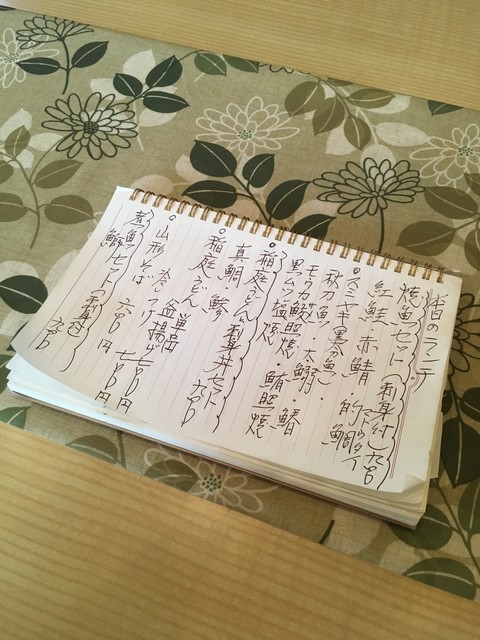 のランチ
焼魚セット(刺身付)九百
マトウダイ
紅鮭 赤鯖 的鯛
スミヤキ
秋刀魚・太
モウカ鮫照焼・
黒ムツ塩焼 鮪照焼
稲庭うどん 刺身丼セット 九百
真鯛、鰺
稲庭うどん 単品
釜揚げ 七百円
山形そば 冷しつけ 六百円
煮魚セット(刺身付)九百